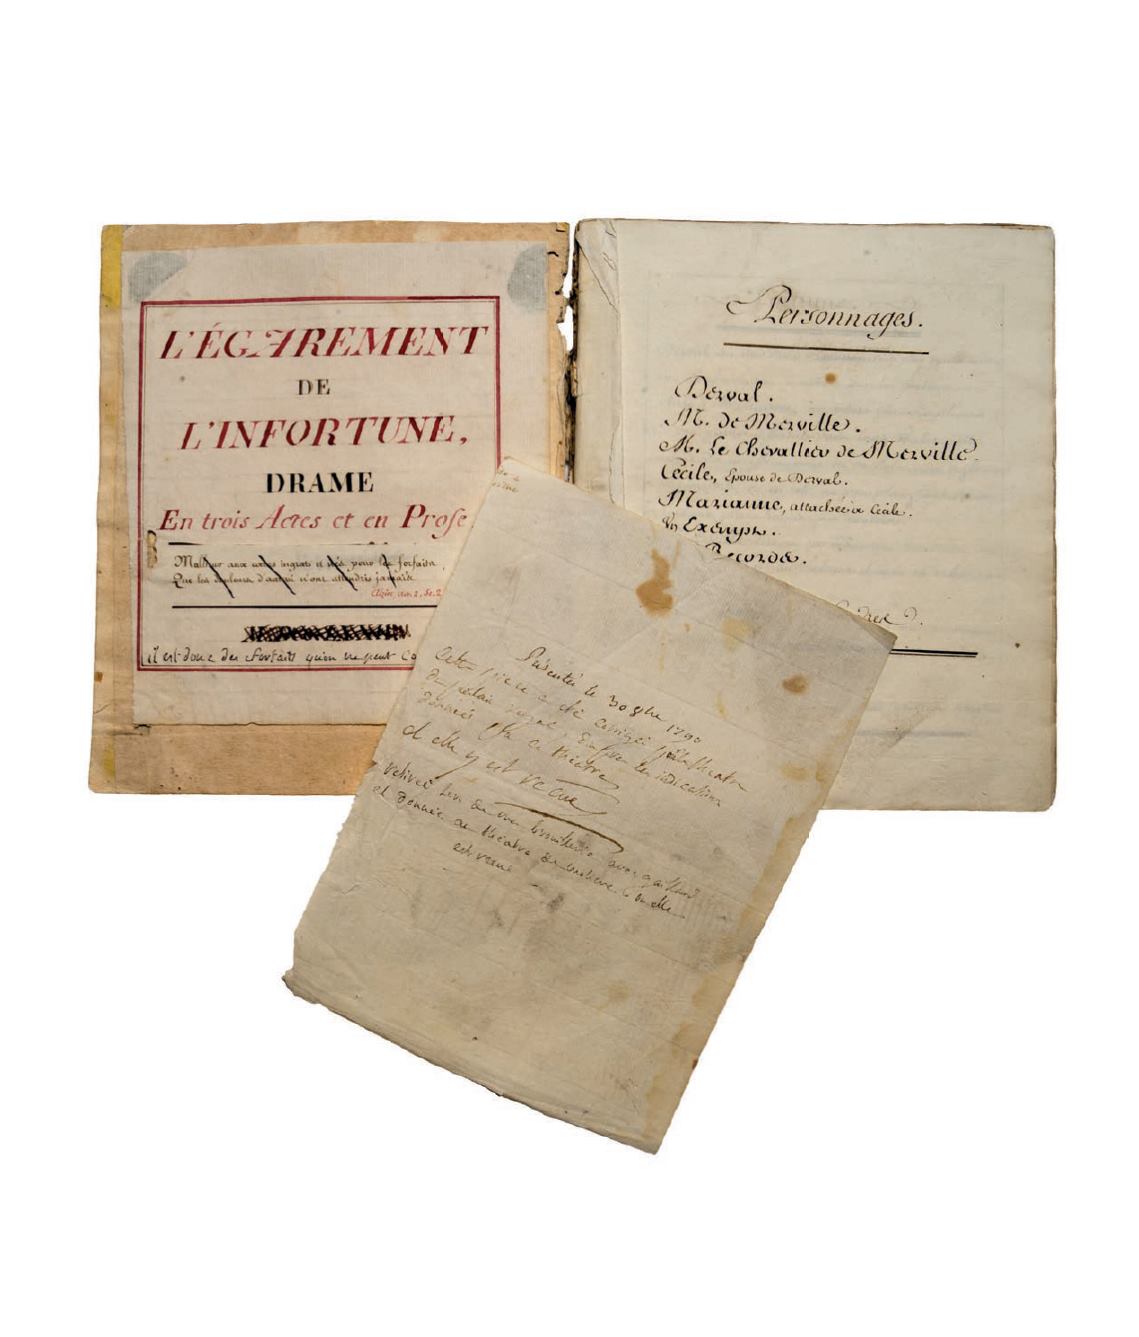 L'ÉGAREMENT
DE
L'INFORTUNE,
DRAME
En trois Actes et en Prose
Malheur aux cœurs ingrats et nés pour les forfaits,
Que les douleurs d'autrui n'ont attendris jamais
il est donc des forfaits qu'on ne peut
Personnages.
Derval.
M. de Merville.
M. Le Chevallier de Merville.
Cécile, Epouse de Derval.
Marianne, attachée à Cécile.
Un Exempt.
Présentée le 30 9bre 1790
Cette piece a été corrigée par le theatre
du palais royal,
données par ce théâtre
et elle y est reçue
retirée
et donnée au théâtre
est reçue